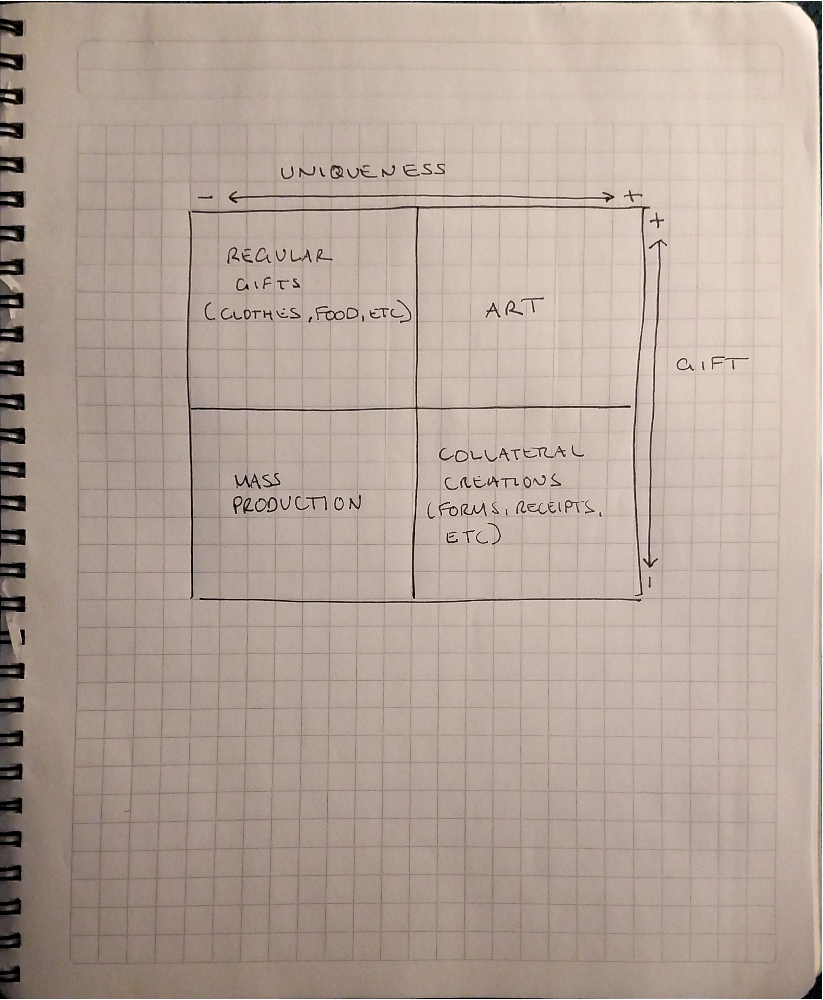 UNIQUENESS
- +
+
REGULAR
GIFTS
(CLOTHES, FOOD, ETC)
ART
GIFT
MASS
PRODUCTION
COLLATERAL
CREATIONS
(FORMS, RECEIPTS,
ETC)
-